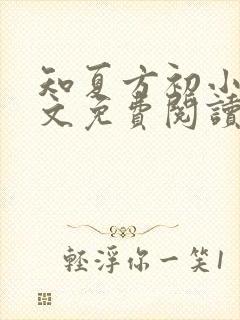 知夏方初小
文免費閱讀
輕浮你一笑1